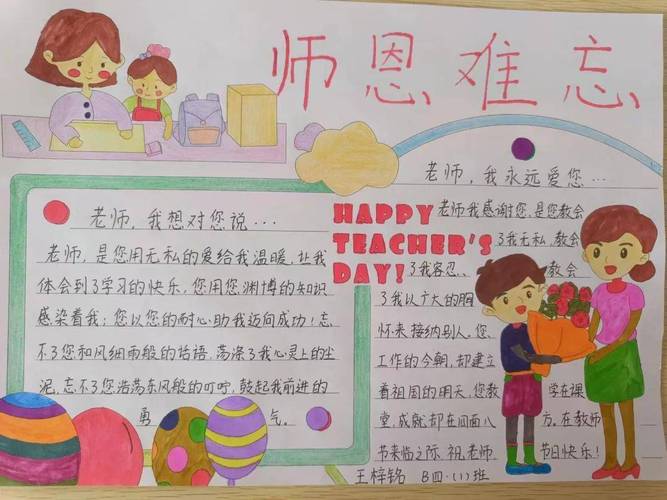 师恩难忘
老师，我想对您说...
老师，是您用无私的爱给我温暖，让我
体会到了学习的快乐，您用您渊博的知识
感染着我；您以您的耐心助我迈向成功！忘
不了您和风细雨般的话语，荡涤了我心灵上的尘
泥，忘不了您浩荡东风般的叮咛，鼓起我前进的
勇气。
HAPPY
TEACHER'S
DAY!
老师，我永远爱您...
老师我感谢您，是您教会
了我无私，教会
了我容忍、教会
了我以广大的胸
怀来接纳别人。您
工作的今朝，却建立
着祖国的明天，您教学在课
堂，成就却在四面八方。在教师
节来临之际，祝老师节日快乐！
王梓铭 B四·(1)班